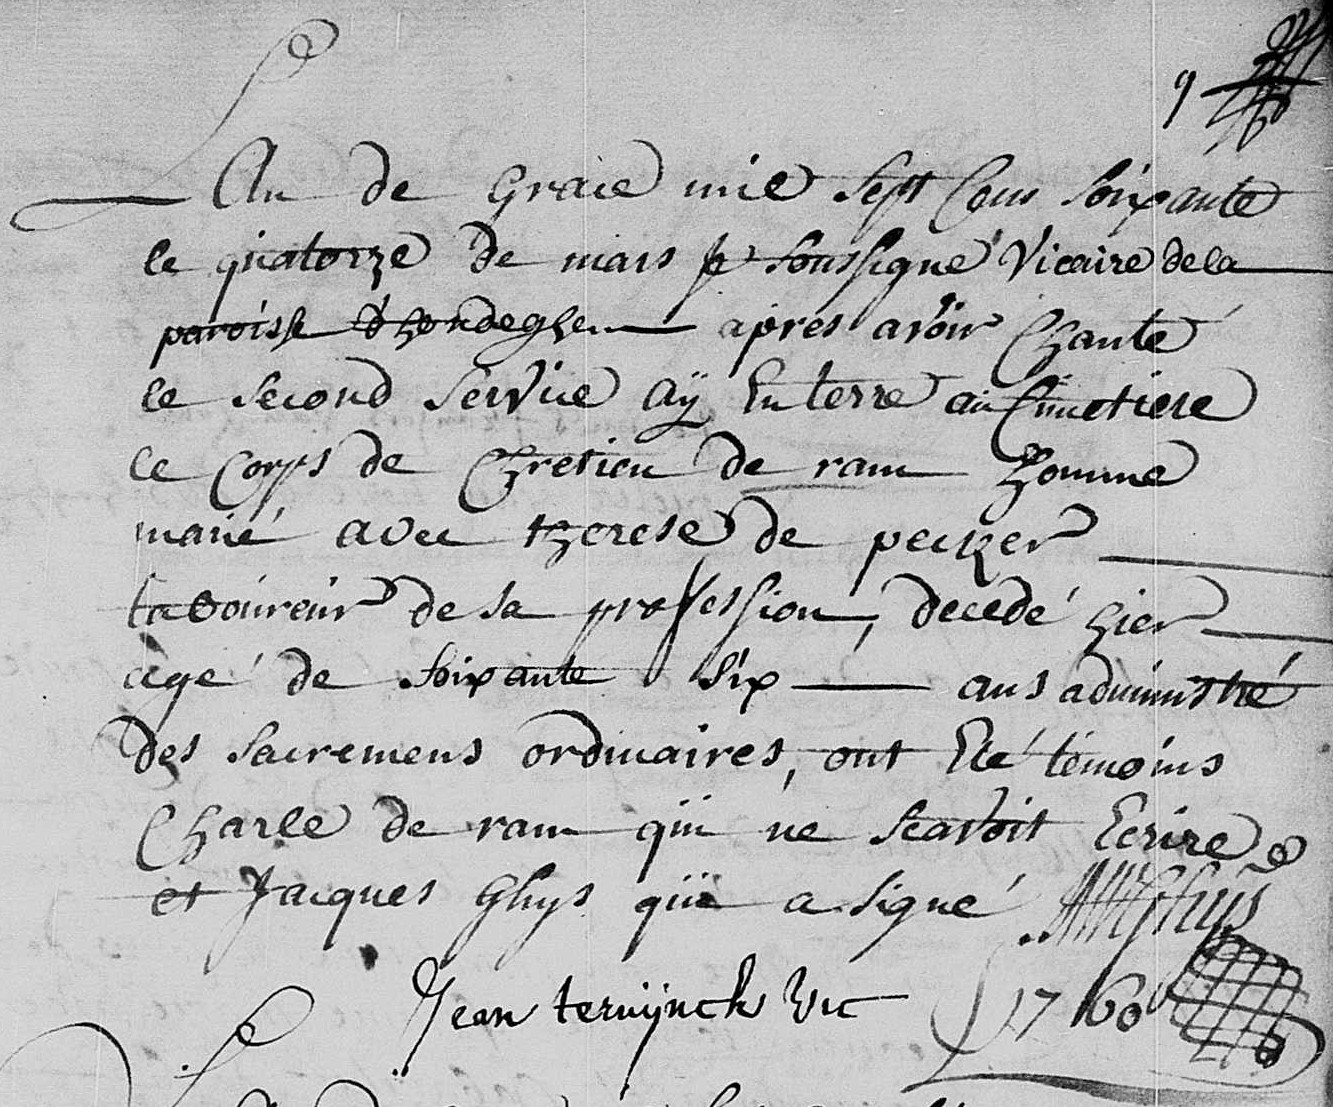 9
L'An de Grace mil sept Cens soixante
le quatorze de mars je soussigné Vicaire de la
paroisse d'hondeghem après avoir Chanté
le second service aÿ Enterré au Cimetiere
le Corps de Chretien de ram homme
marié avec therese de pecker
laboureur de sa profession, decedé hier
agé de soixante six ans administré
des sacremens ordinaires, ont Eté témoins
Charle de ram qui ne scavoit Ecrire
et Jacques Ghys qui a signé JGhys
Jean teruynck vic 1760